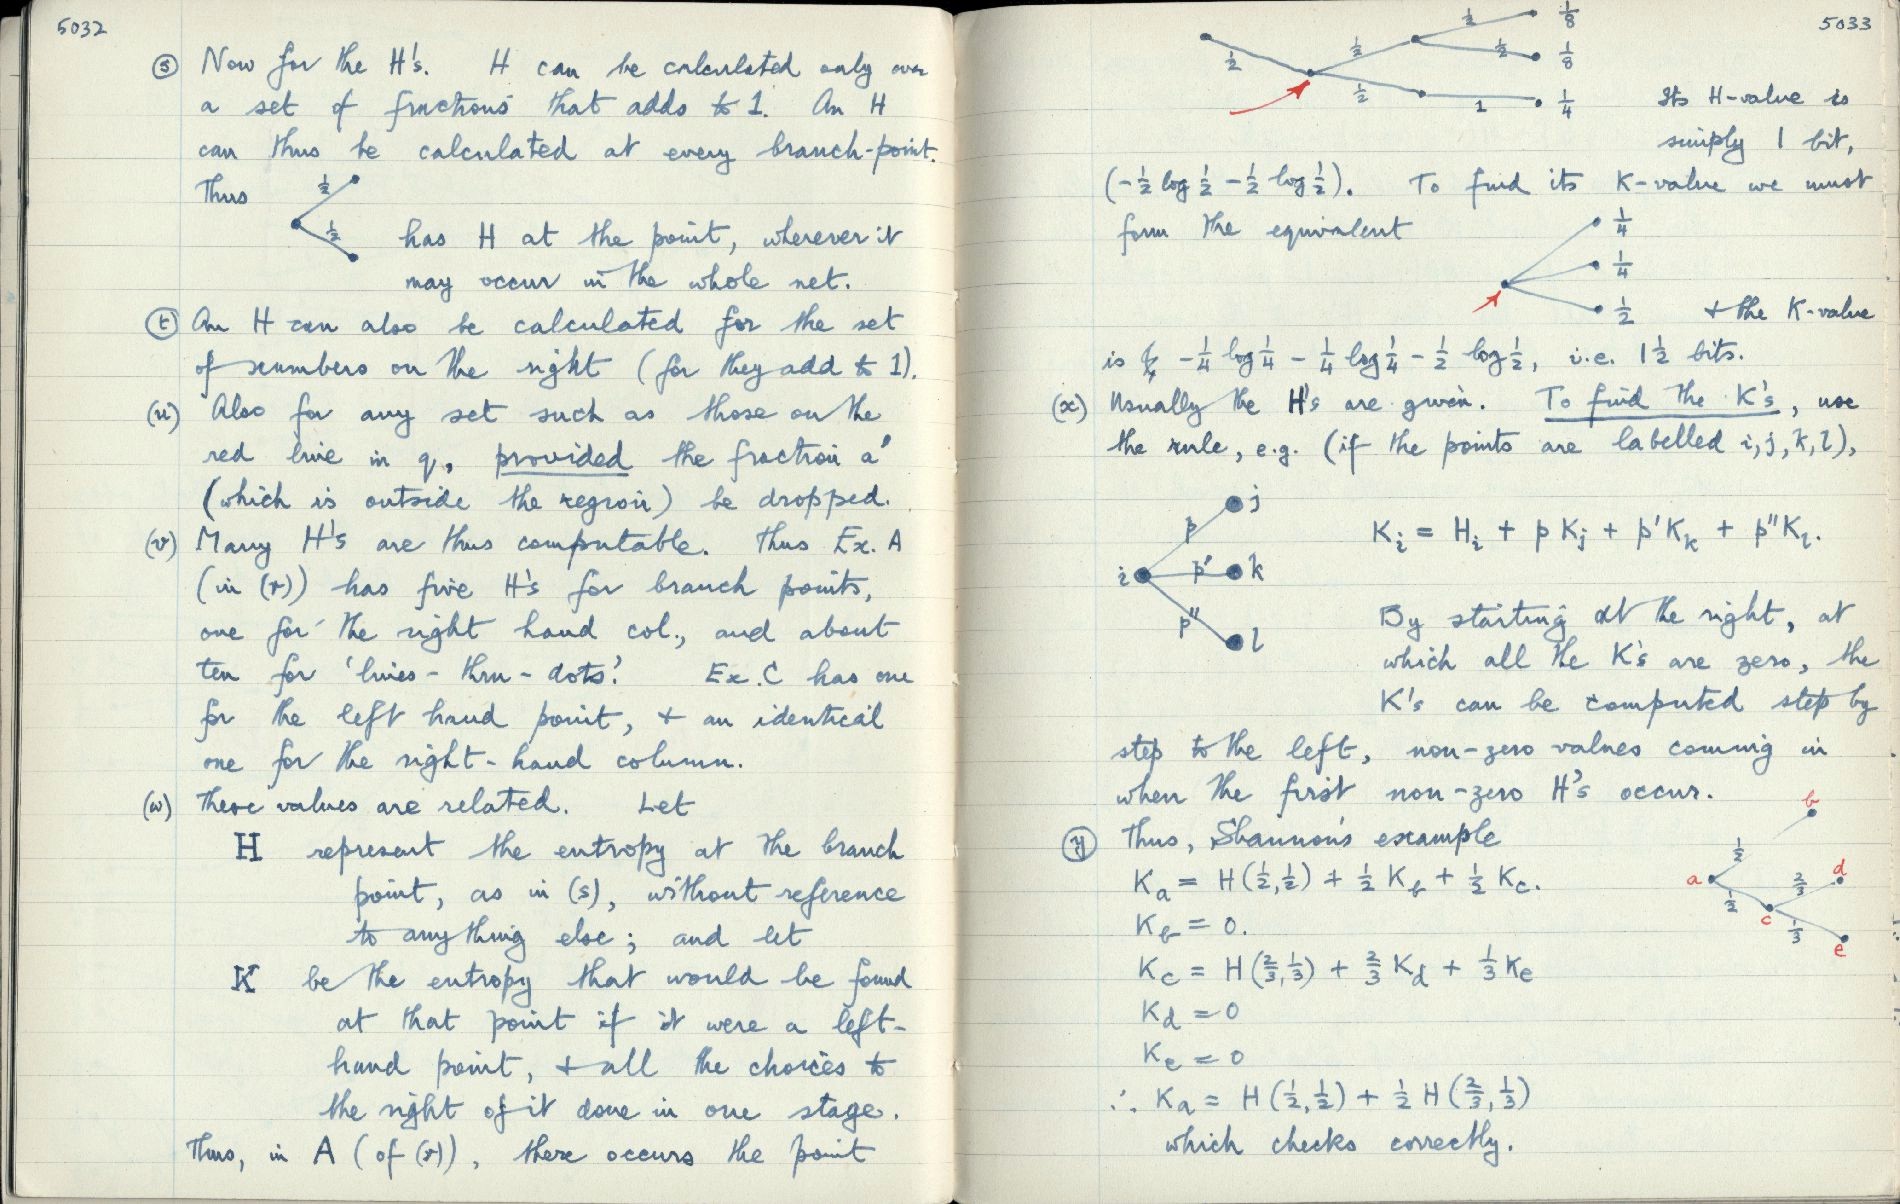 5032
(s) Now for the H's. H can be calculated only over
a set of fractions that adds to 1. An H
can thus be calculated at every branch-point.
Thus
1/2
1/2
has H at the point, wherever it
may occur in the whole net.
(t) An H can also be calculated for the set
of numbers on the right (for they add to 1).
(u) Also for any set such as those on the
red line in q, provided the fraction a'
(which is outside the region) be dropped.
(v) Many H's are thus computable. Thus Ex. A
(in (r)) has five H's for branch points,
one for the right hand col., and about
ten for 'lines-thru-dots'. Ex. C has one
for the left hand point, + an identical
one for the right-hand column.
(w) These values are related. Let
H represent the entropy at the branch
point, as in (s), without reference
to anything else; and let
K be the entropy that would be found
at that point if it were a left-
hand point, + all the choices to
the right of it done in one stage.
Thus, in A (of (r)), there occurs the point
5033
1/2 1/2 1/2 1/8
1/2 1/8
1/2 1 1/4
Its H-value is
simply 1 bit,
(-1/2 log 1/2 - 1/2 log 1/2). To find its K-value we must
form the equivalent
1/4
1/4
1/2
+ the K-value
is -1/4 log 1/4 - 1/4 log 1/4 - 1/2 log 1/2, i.e. 1 1/2 bits.
(x) Usually the H's are given. To find the K's, use
the rule, e.g. (if the points are labelled i, j, k, l),
j
p
i p' k
p''
l
K_i = H_i + p K_j + p' K_k + p'' K_l.
By starting at the right, at
which all the K's are zero, the
K's can be computed step by
step to the left, non-zero values coming in
when the first non-zero H's occur.
(y) Thus, Shannon's example
K_a = H(1/2, 1/2) + 1/2 K_b + 1/2 K_c.
K_b = 0.
K_c = H(2/3, 1/3) + 2/3 K_d + 1/3 K_e
K_d = 0
K_e = 0
∴ K_a = H(1/2, 1/2) + 1/2 H(2/3, 1/3)
which checks correctly.
b
1/2
a 2/3 d
1/2
c 1/3
e